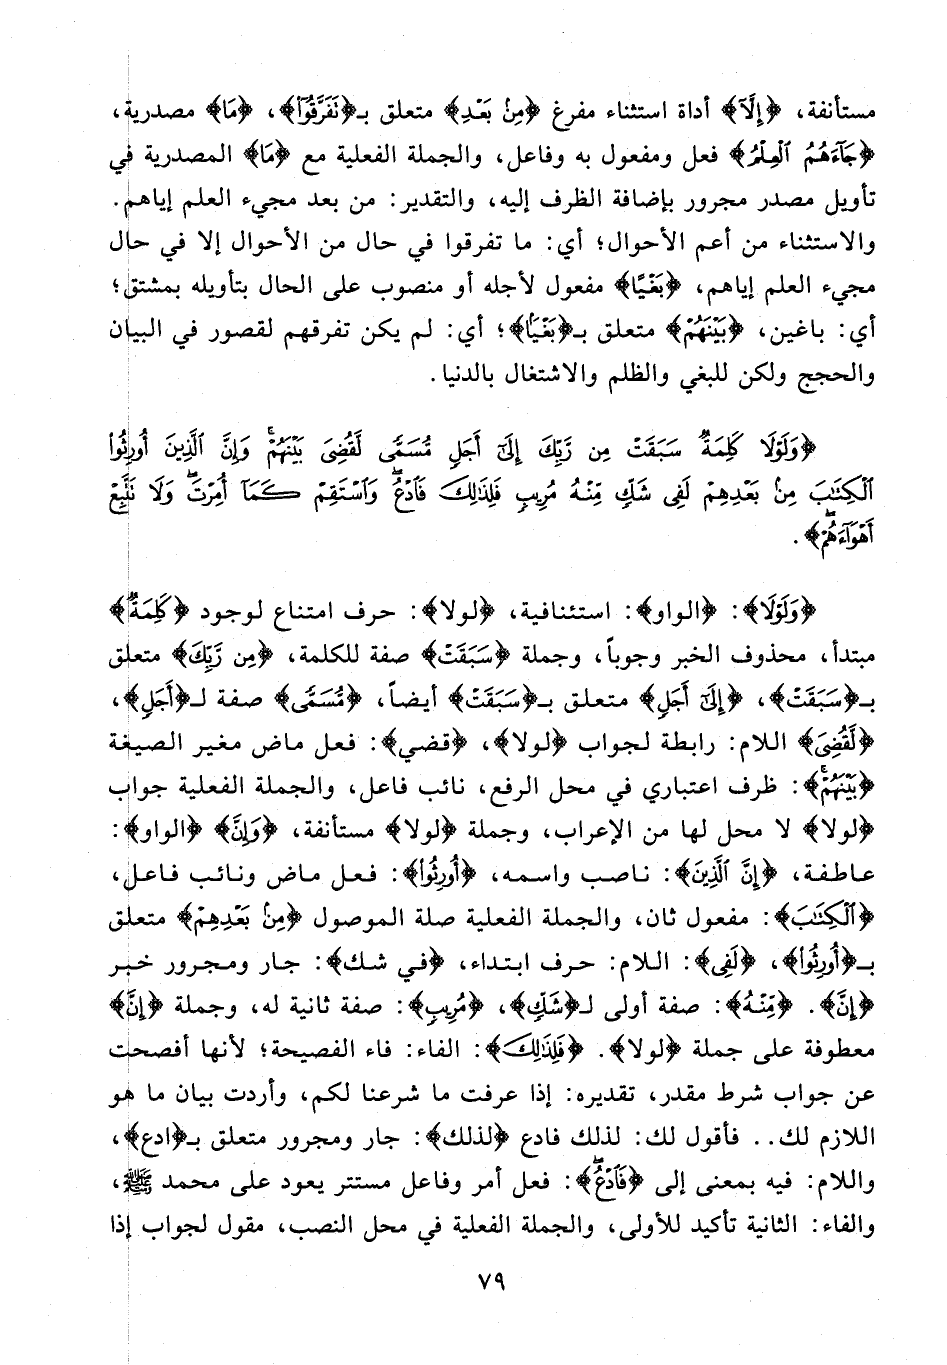 مستأنفة، ﴿إِلَّا﴾ أداة استثناء مفرغ ﴿مِنْ بَعْدِ﴾ متعلق بـ﴿تَفَرَّقُوٓا﴾، ﴿مَا﴾ مصدرية،
﴿جَآءَهُمُ ٱلْعِلْمُ﴾ فعل ومفعول به وفاعل، والجملة الفعلية مع ﴿مَا﴾ المصدرية في
تأويل مصدر مجرور بإضافة الظرف إليه، والتقدير: من بعد مجيء العلم إياهم.
والاستثناء من أعم الأحوال؛ أي: ما تفرقوا في حال من الأحوال إلا في حال
مجيء العلم إياهم، ﴿بَغْيًا﴾ مفعول لأجله أو منصوب على الحال بتأويله بمشتق؛
أي: باغين، ﴿بَيْنَهُمْ﴾ متعلق بـ﴿بَغْيًا﴾؛ أي: لم يكن تفرقهم لقصور في البيان
والحجج ولكن للبغي والظلم والاشتغال بالدنيا.
﴿وَلَوْلَا كَلِمَةٌ سَبَقَتْ مِن رَّبِّكَ إِلَىٰٓ أَجَلٍ مُّسَمًّى لَّقُضِىَ بَيْنَهُمْ ۚ وَإِنَّ ٱلَّذِينَ أُورِثُوا
ٱلْكِتَـٰبَ مِنۢ بَعْدِهِمْ لَفِى شَكٍّ مِّنْهُ مُرِيبٍ فَلِذَٰلِكَ فَٱدْعُ ۖ وَٱسْتَقِمْ كَمَآ أُمِرْتَ ۖ وَلَا تَتَّبِعْ
أَهْوَآءَهُمْ ۖ﴾.
﴿وَلَوْلَا﴾: ﴿الواو﴾: استئنافية، ﴿لولا﴾: حرف امتناع لوجود ﴿كَلِمَةٌ﴾
مبتدأ، محذوف الخبر وجوباً، وجملة ﴿سَبَقَتْ﴾ صفة للكلمة، ﴿مِن رَّبِّكَ﴾ متعلق
بـ﴿سَبَقَتْ﴾، ﴿إِلَىٰٓ أَجَلٍ﴾ متعلق بـ﴿سَبَقَتْ﴾ أيضاً، ﴿مُّسَمًّى﴾ صفة لـ﴿أَجَلٍ﴾،
﴿لَّقُضِىَ﴾ اللام: رابطة لجواب ﴿لولا﴾، ﴿قضي﴾: فعل ماض مغير الصيغة
﴿بَيْنَهُمْ ۚ﴾: ظرف اعتباري في محل الرفع، نائب فاعل، والجملة الفعلية جواب
﴿لولا﴾ لا محل لها من الإعراب، وجملة ﴿لولا﴾ مستأنفة، ﴿وَإِنَّ﴾ ﴿الواو﴾:
عاطفة، ﴿إِنَّ ٱلَّذِينَ﴾: ناصب واسمه، ﴿أُورِثُوا﴾: فعل ماض ونائب فاعل،
﴿ٱلْكِتَـٰبَ﴾: مفعول ثان، والجملة الفعلية صلة الموصول ﴿مِنۢ بَعْدِهِمْ﴾ متعلق
بـ﴿أُورِثُوا﴾، ﴿لَفِى﴾: اللام: حرف ابتداء، ﴿في شك﴾: جار ومجرور خبر
﴿إِنَّ﴾. ﴿مِّنْهُ﴾: صفة أولى لـ﴿شَكٍّ﴾، ﴿مُرِيبٍ﴾: صفة ثانية له، وجملة ﴿إِنَّ﴾
معطوفة على جملة ﴿لولا﴾. ﴿فَلِذَٰلِكَ﴾: الفاء: فاء الفصيحة؛ لأنها أفصحت
عن جواب شرط مقدر، تقديره: إذا عرفت ما شرعنا لكم، وأردت بيان ما هو
اللازم لك.. فأقول لك: لذلك فادع ﴿لذلك﴾: جار ومجرور متعلق بـ﴿ادع﴾،
واللام: فيه بمعنى إلى ﴿فَٱدْعُ ۖ﴾: فعل أمر وفاعل مستتر يعود على محمد ﷺ،
والفاء: الثانية تأكيد للأولى، والجملة الفعلية في محل النصب، مقول لجواب إذا
٧٩